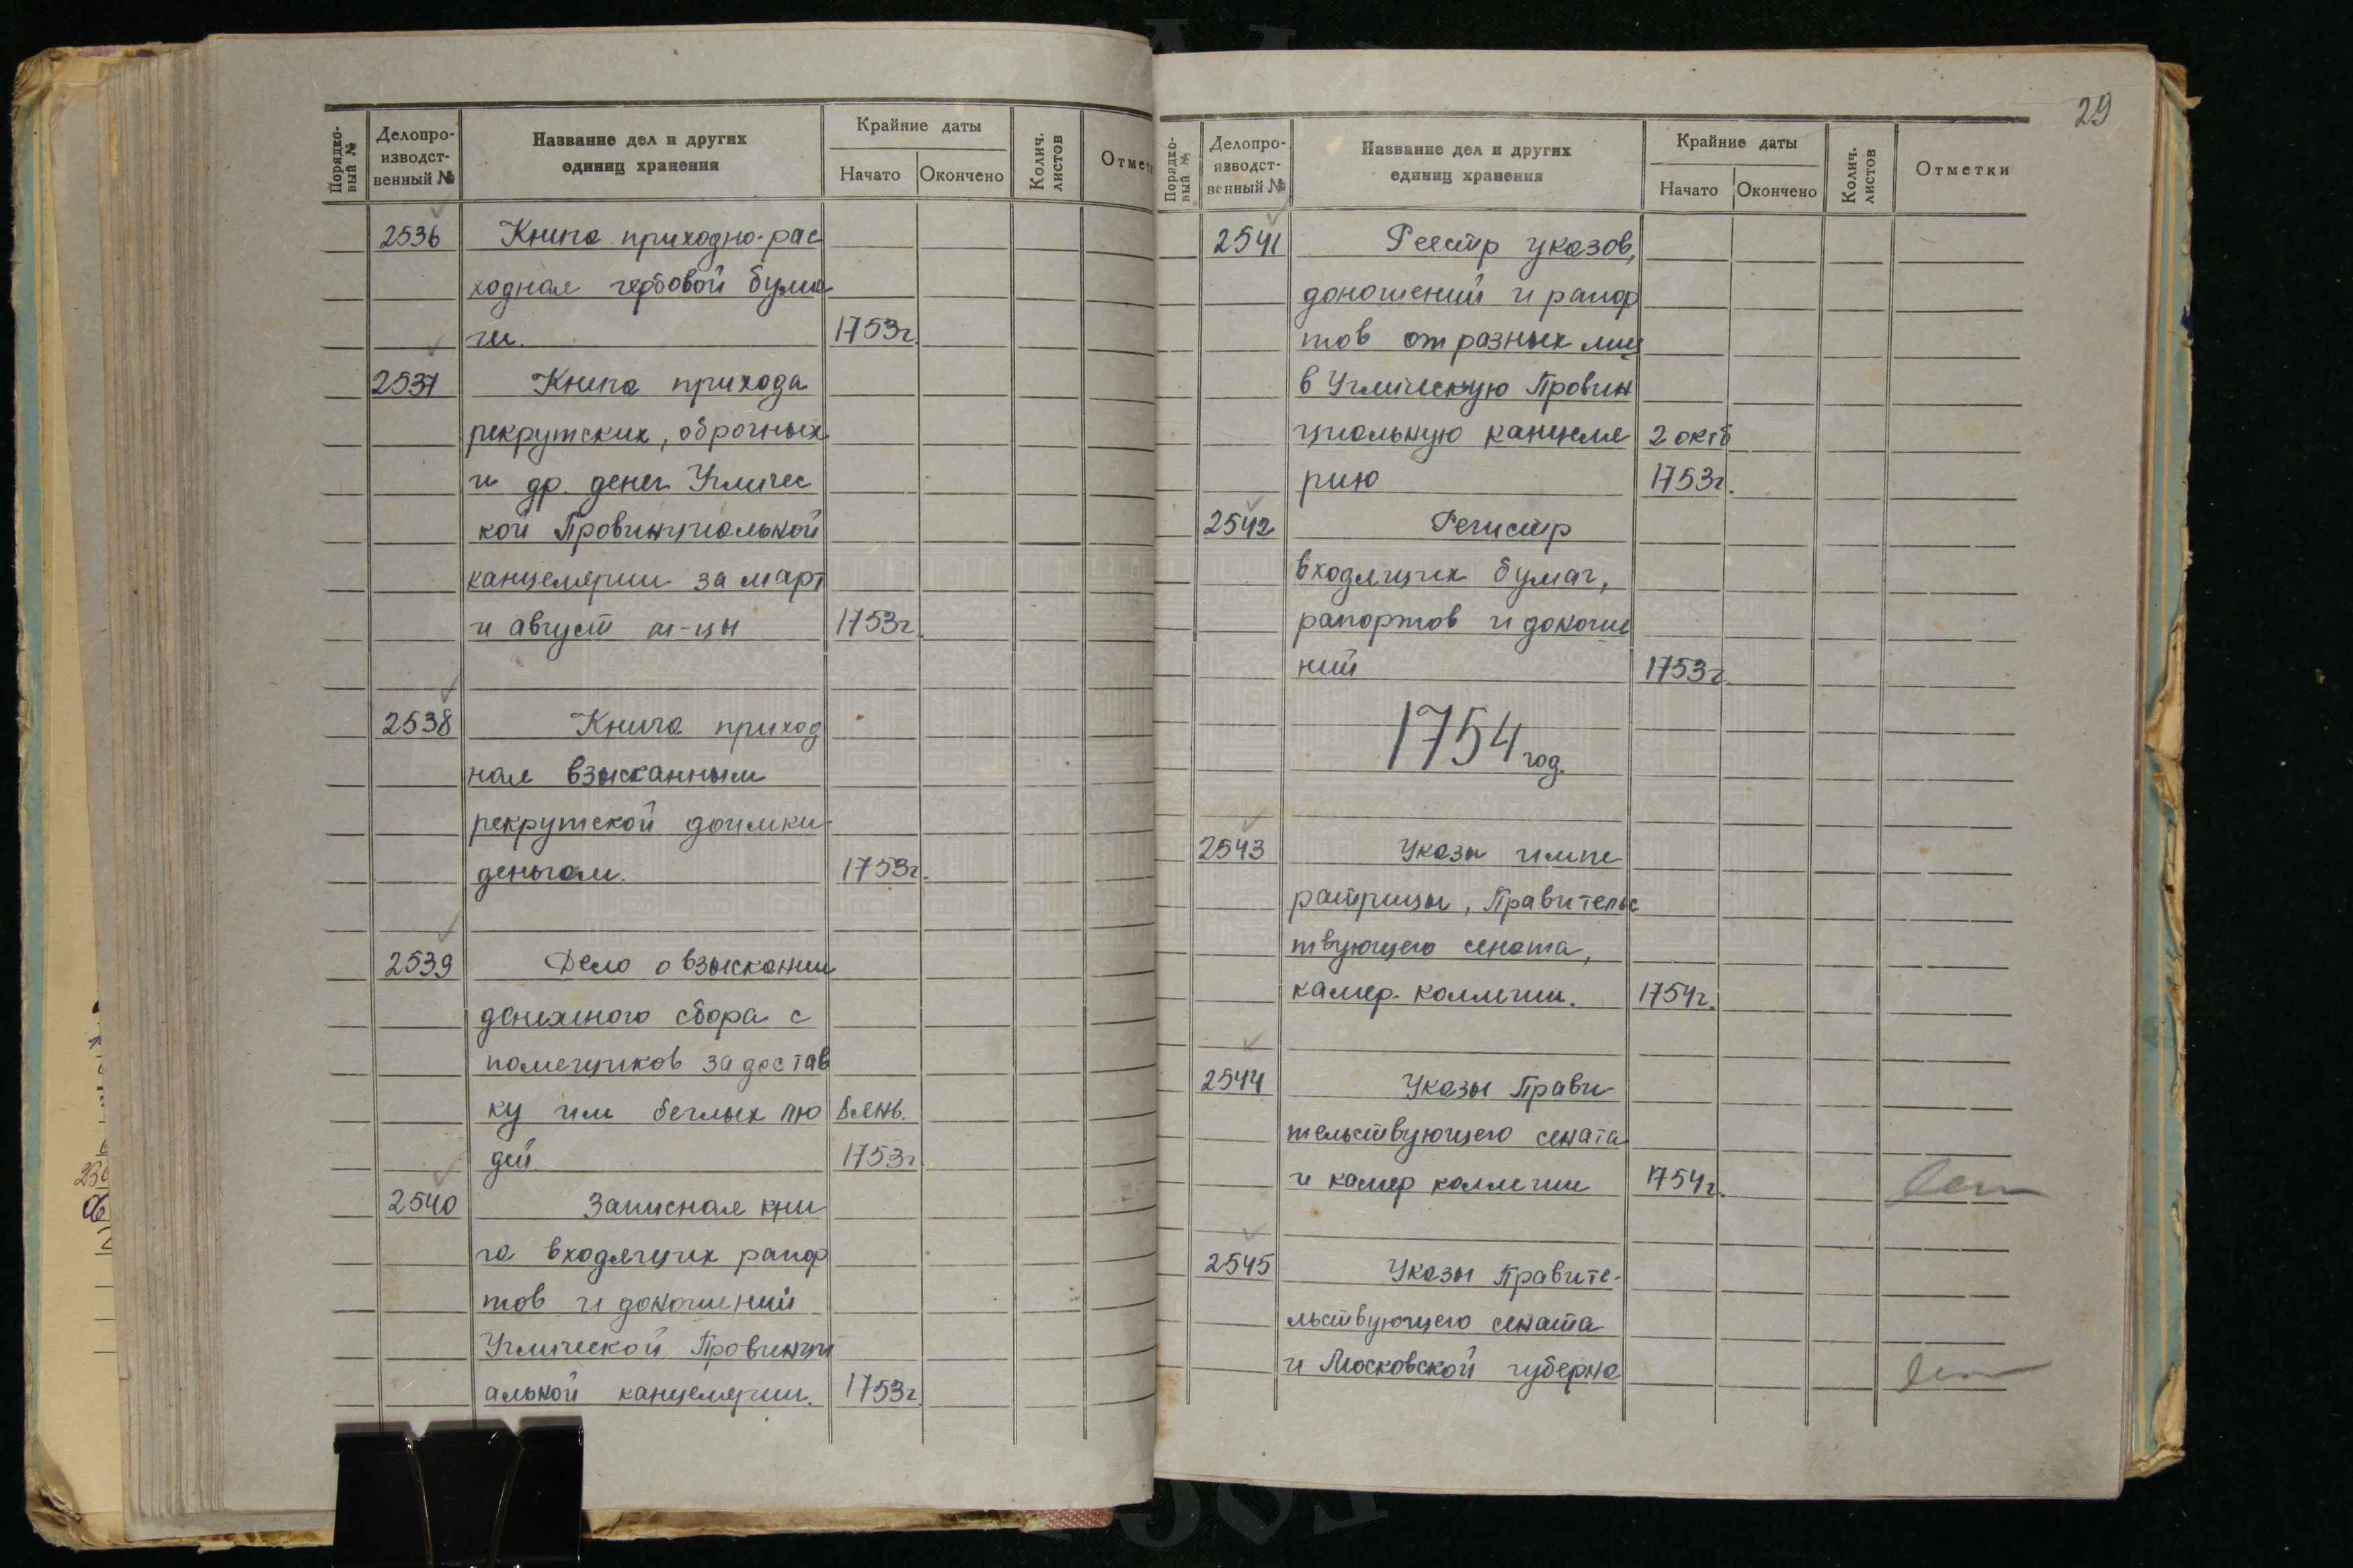 Порядко-
вый №
Делопро-
изводст-
венный №
Название дел и других
единиц хранения
Крайние даты
Начато
Окончено
Колич.
листов
Отмет
2536 Книга приходно-рас
ходная гербовой бума
ги. 1753г.
2537 Книга прихода
рекрутских, оброчных
и др. денег Угличес
кой Провинциальной
канцелярии за март
и август м-цы 1753г.
2538 Книга приход
ная взысканным
рекрутской доимки
деньгам. 1753г.
2539 Дело о взыскании
денежного сбора с
помещиков за достав
ку им беглых лю янв.
дей 1753г.
2540 Записная кни
га входящих рапор
тов и доношений
Угличской Провинци
альной канцелярии. 1753г.
29
Порядко-
вый №
Делопро-
изводст-
венный №
Название дел и других
единиц хранения
Крайние даты
Начато
Окончено
Колич.
листов
Отметки
2541 Реестр указов,
доношений и рапор
тов от разных лиц
в Угличскую Провин
циальную канцеля 2 октб
рию 1753г.
2542 Регистр
входящих бумаг,
рапортов и доноше
ний 1753г.
1754 год.
2543 Указы импе
ратрицы, Правительс
твующего сената,
камер-коллегии. 1754г.
2544 Указы Прави
тельствующего сената
и камер коллегии 1754г.
2545 Указы Правите-
льствующего сената
и Московской губерна